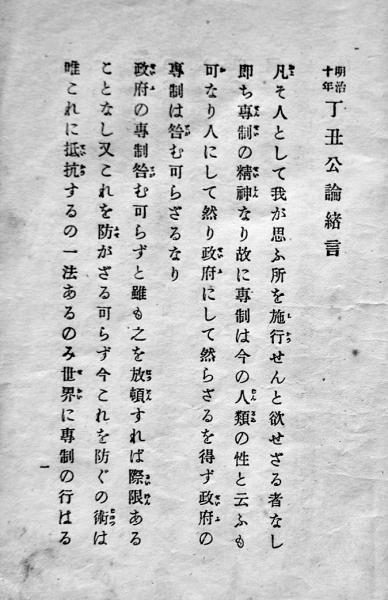 明治十年 丁丑公論緒言
凡そ人として我が思ふ所を施行せんと欲せざる者なし
即ち専制の精神なり故に専制は今の人類の性と云ふも
可なり人にして然り政府にして然らざるを得ず政府の
専制は咎む可らざるなり
政府の専制咎む可らずと雖も之を放頓すれば際限ある
ことなし又これを防がざる可らず今これを防ぐの術は
唯これに抵抗するの一法あるのみ世界に専制の行はる
一